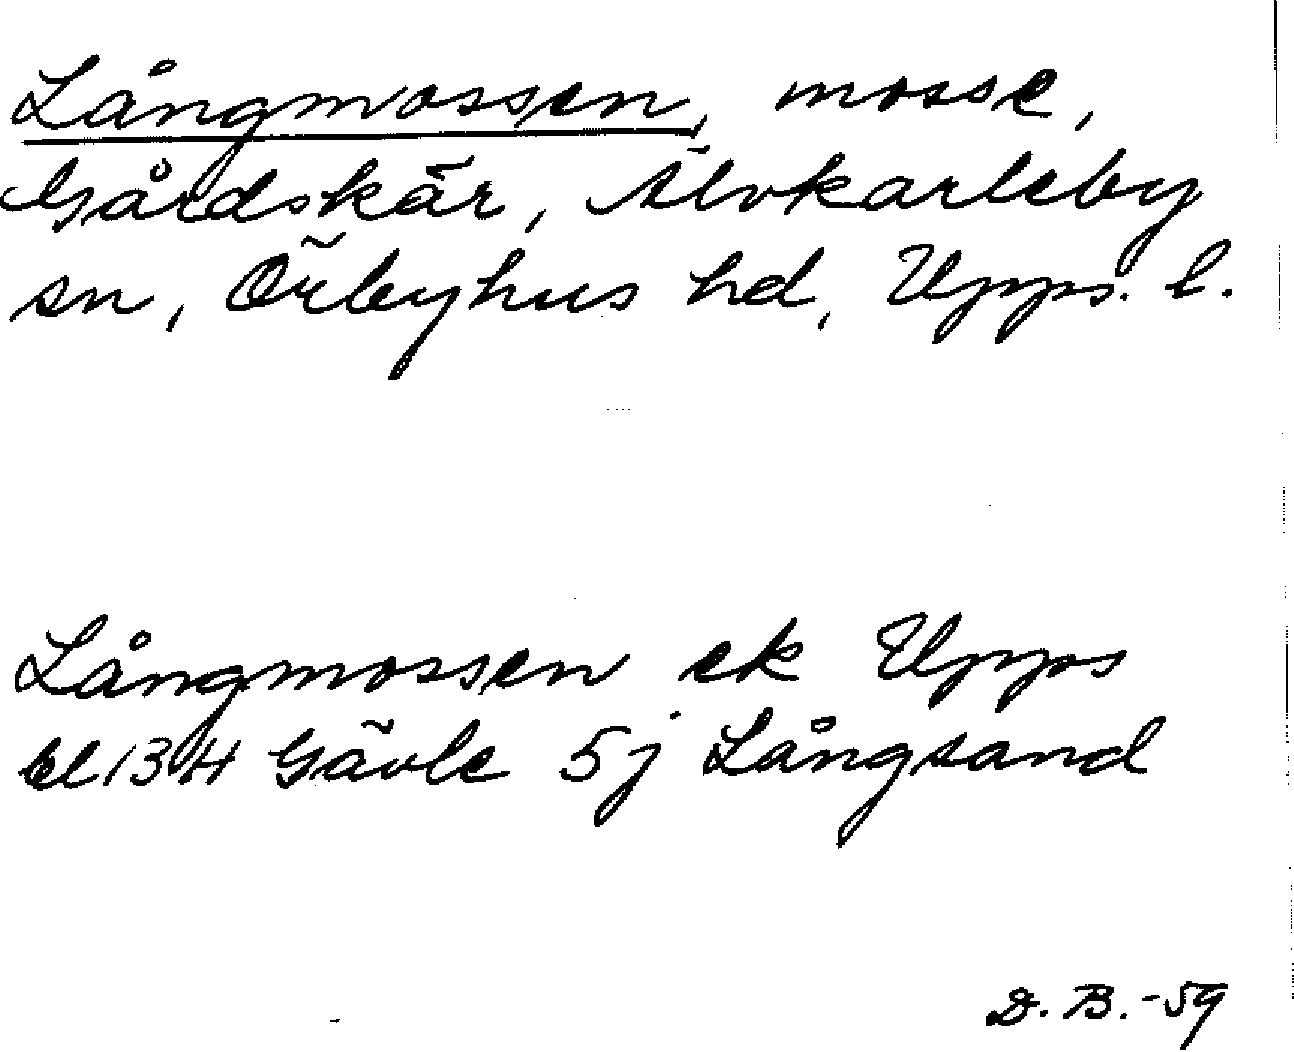 Långmossen, mosse,
Gårdskär, Älvkarleby
sn, Örbyhus hd, Upps. l.
Långmossen ek Upps
bl 13H Gävle 5j Långsand
D. B. -59